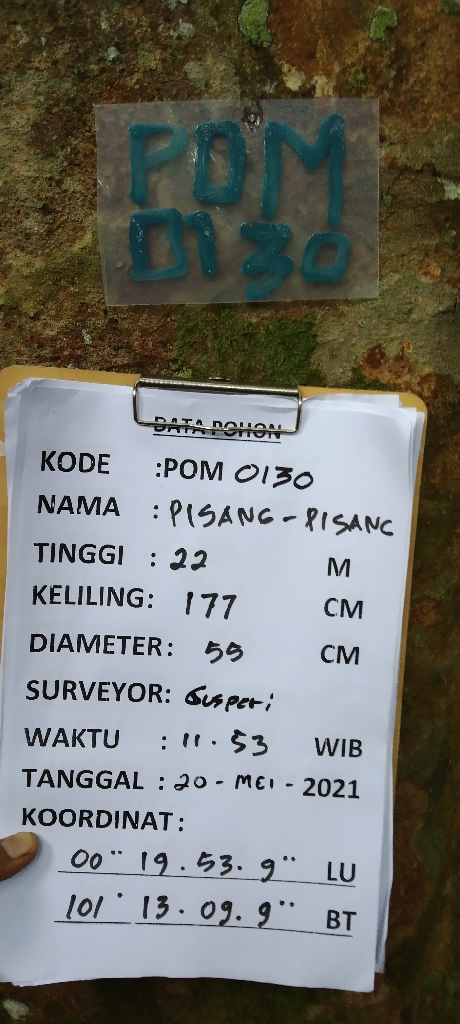 POM
0130
DATA POHON
KODE :POM 0130
NAMA : PISANG - PISANG
TINGGI : 22 M
KELILING: 177 CM
DIAMETER: 55 CM
SURVEYOR: Susperi
WAKTU : 11.53 WIB
TANGGAL : 20 - MEI - 2021
KOORDINAT:
00¨ 19.53.9¨ LU
101˙ 13.09.9¨ BT